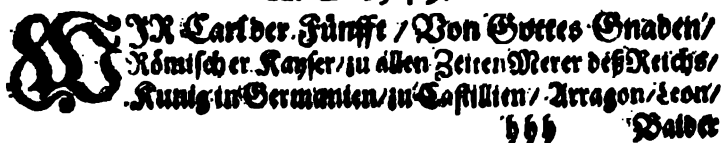 WJR Carl der Fünfft / Von Gottes Gnaden /
Römischer Kayser / zu allen Zeiten Merer deß Reichs /
Kunig in Germanien / zu Castillien / Arragon / Leon /
h h h Baider